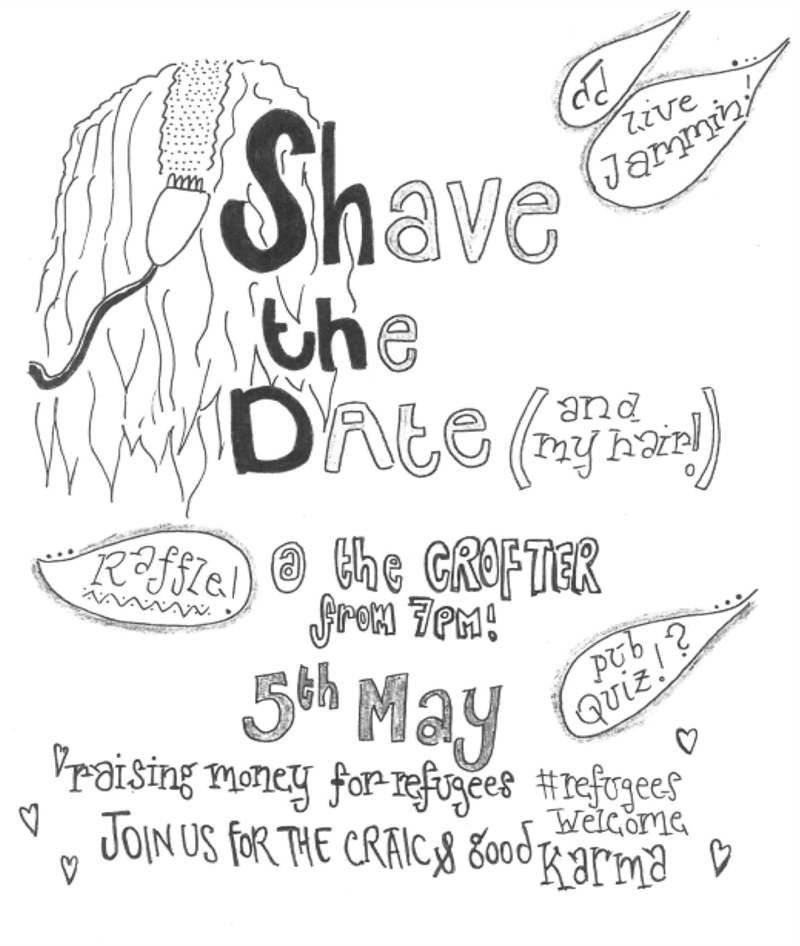 Live
Jammin'!
Shave
the
Date (and
my hair!)
Raffle!
@ the CROFTER
from 7pm!
5th May
pub
Quiz!?
raising money for refugees
#refugees
welcome
JOIN US FOR THE CRAIC & good
karma